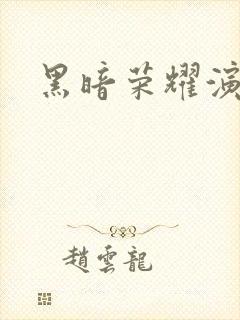 黑暗荣耀演
趙雲龍